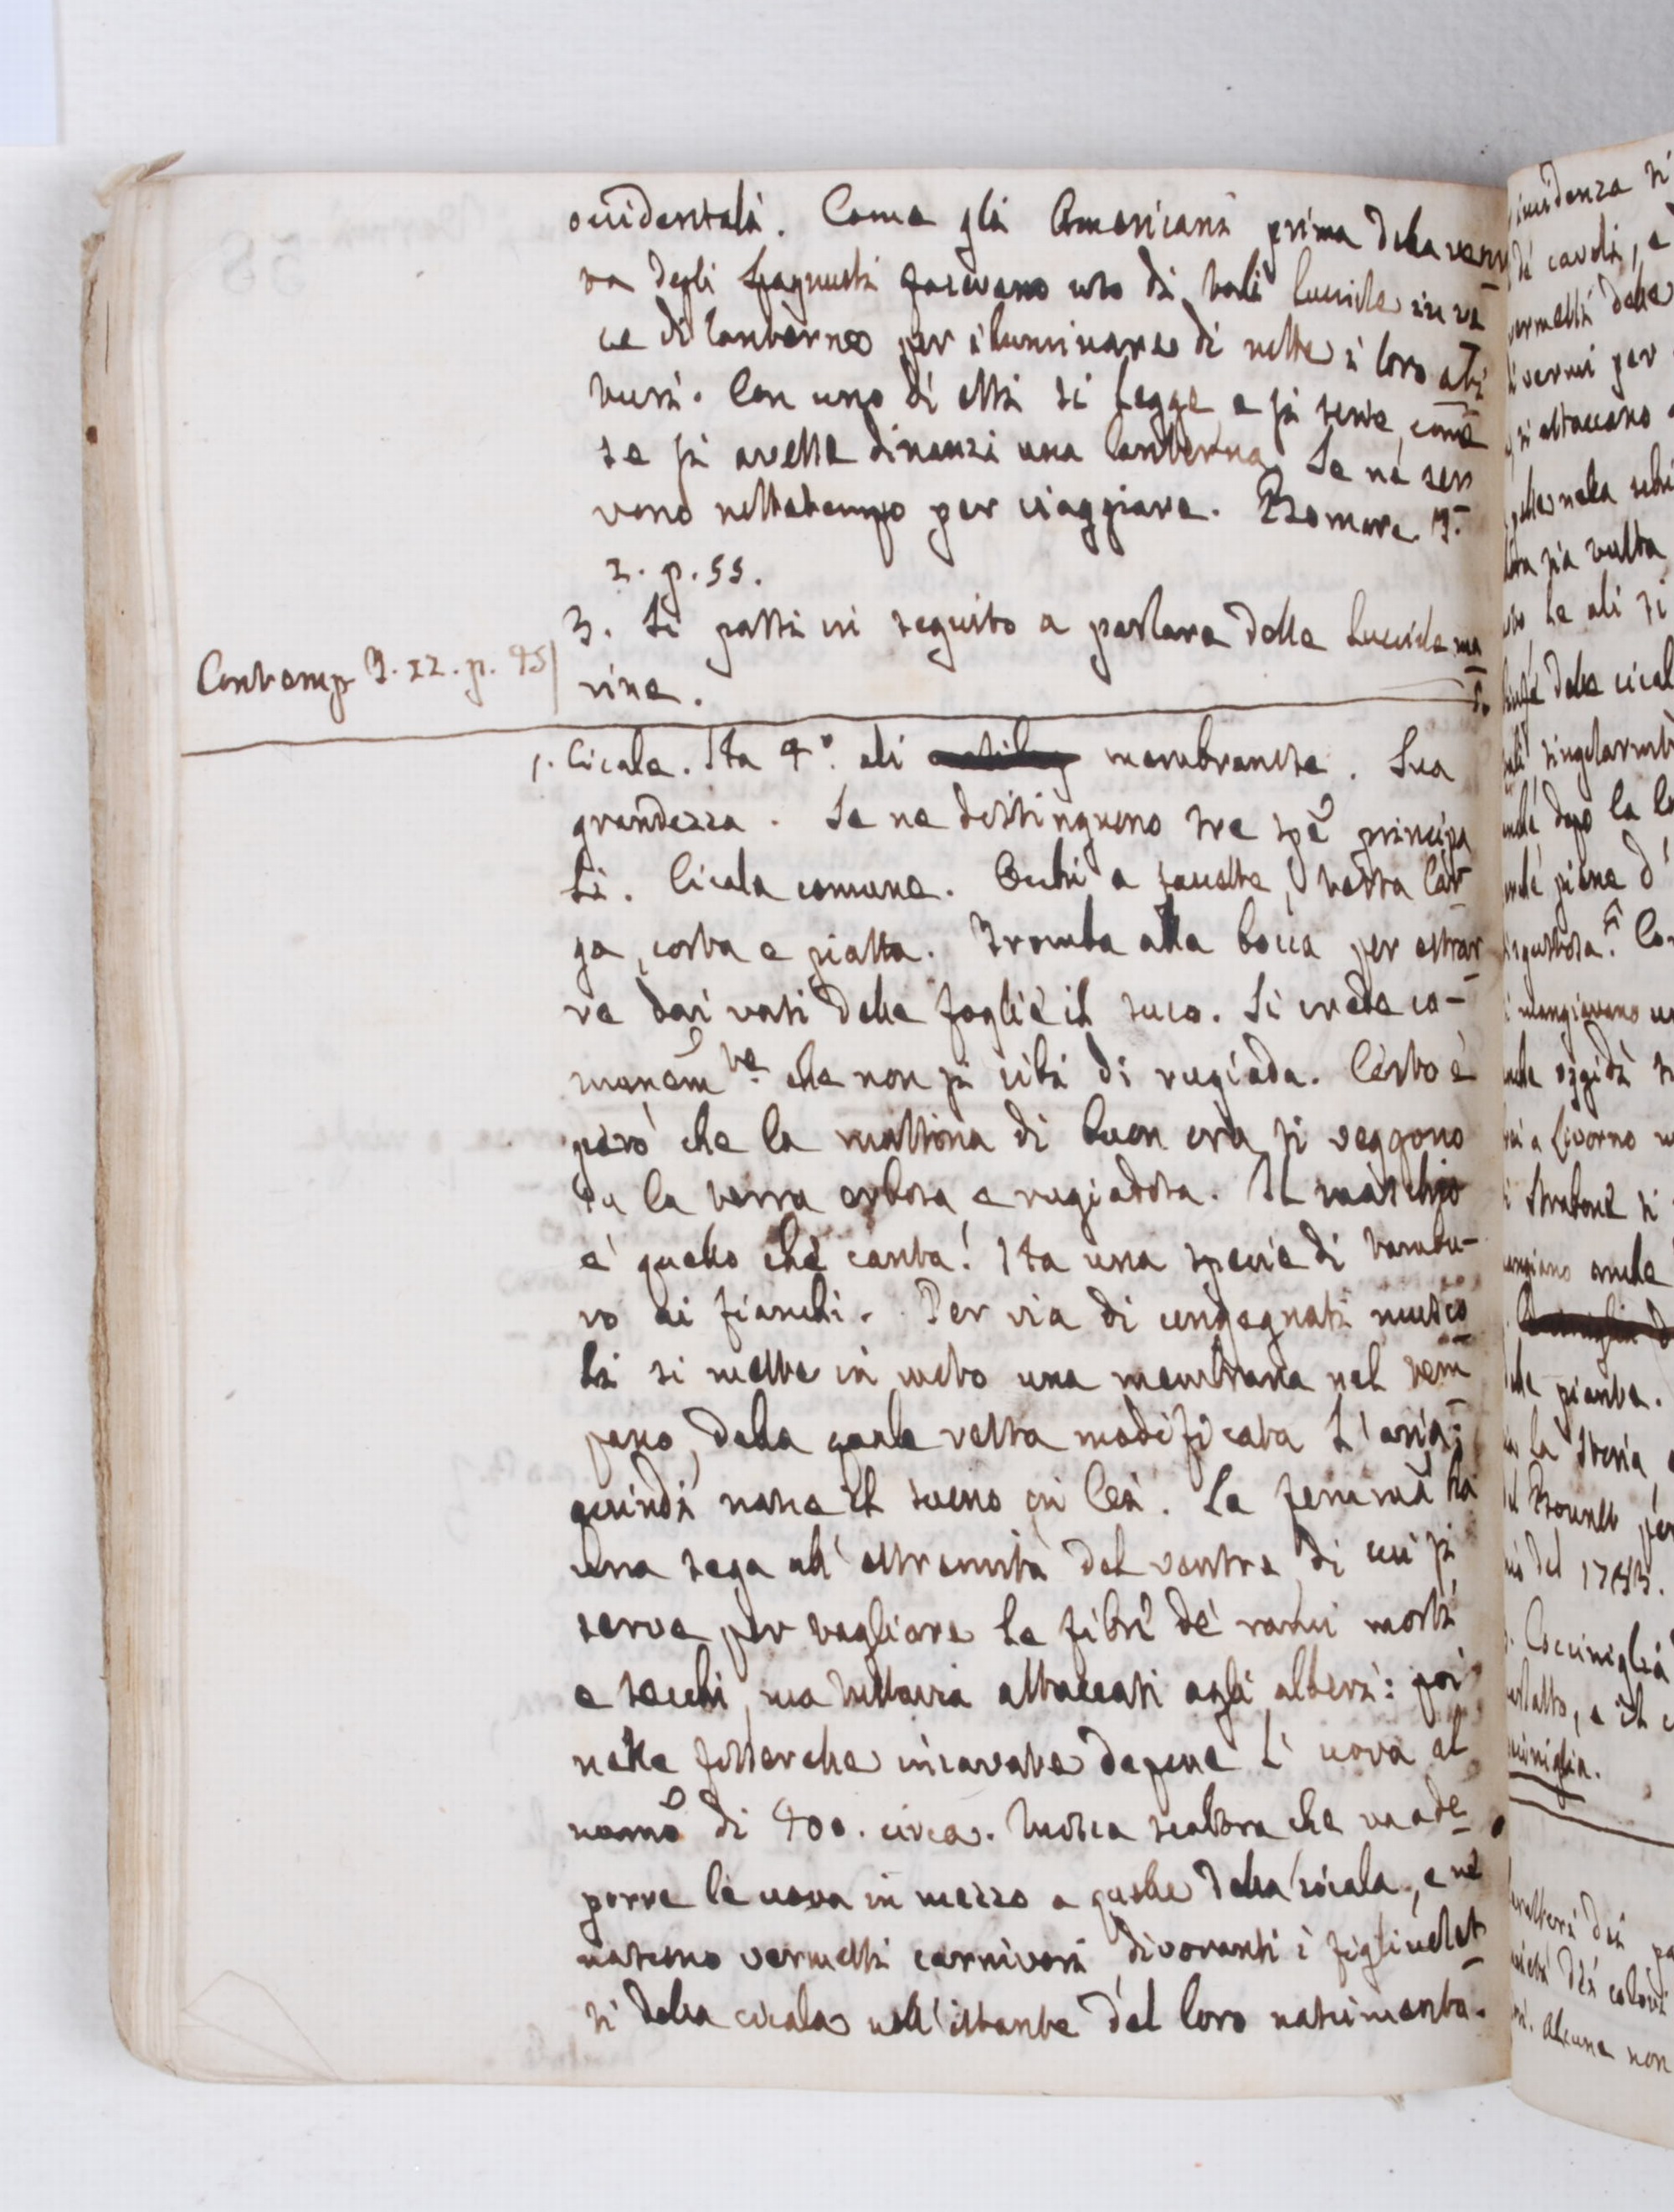 occidentali. Come gli Americani prima della venu
ta degli Spagnuoli facevano uso di tali lucciole in ve
ce di lanterne per illuminare di notte i loro abi
turi. Con uno di essi si legge e si scrive, come
se si avesse dinanzi una lanterna. Se ne ser
vono nottetempo per viaggiare. Bomare T.
2. p. 55.
3. Si passi in seguito a parlare delle lucciole ma
rine.
Contemp T. 12. p. 45
1. Cicale. Ha 4.º ali membranose. Sua
grandezza. Se ne distinguono tre spe principa
li. Cicala comune. Occhi a faccette, testa lar
ga, corta e piatta. Tromba alla bocca per estrar
re dai vasi delle foglie il suco. Si crede co-
munem.te che non si cibi di rugiada. Certo è
però che la mattina di buon ora si veggono
su la terra erbosa e rugiadosa. Il maschio
è quello che canta. Ha una specie di tambu-
ro ai fianchi. Per via di congegnati musco
li si mette in moto una membrana nel tim
pano, dalla quale resta modificata l'aria:
quindi nasce il suono in lei. La femina ha
una sega all'estremità del ventre, di cui si
serve per tagliare le fibre de' rami morti
e secchi, ma tuttavia attaccati agli alberi: poi
nelle fosserelle incavate depone l'uova al
numo di 400. circa. Mosca scaltra che va a de
porre le uova in mezzo a quelle della cicala, e ne
nascono vermetti carnivori divoranti i figliuolet
ti della cicala nell'istante del loro nascimento.